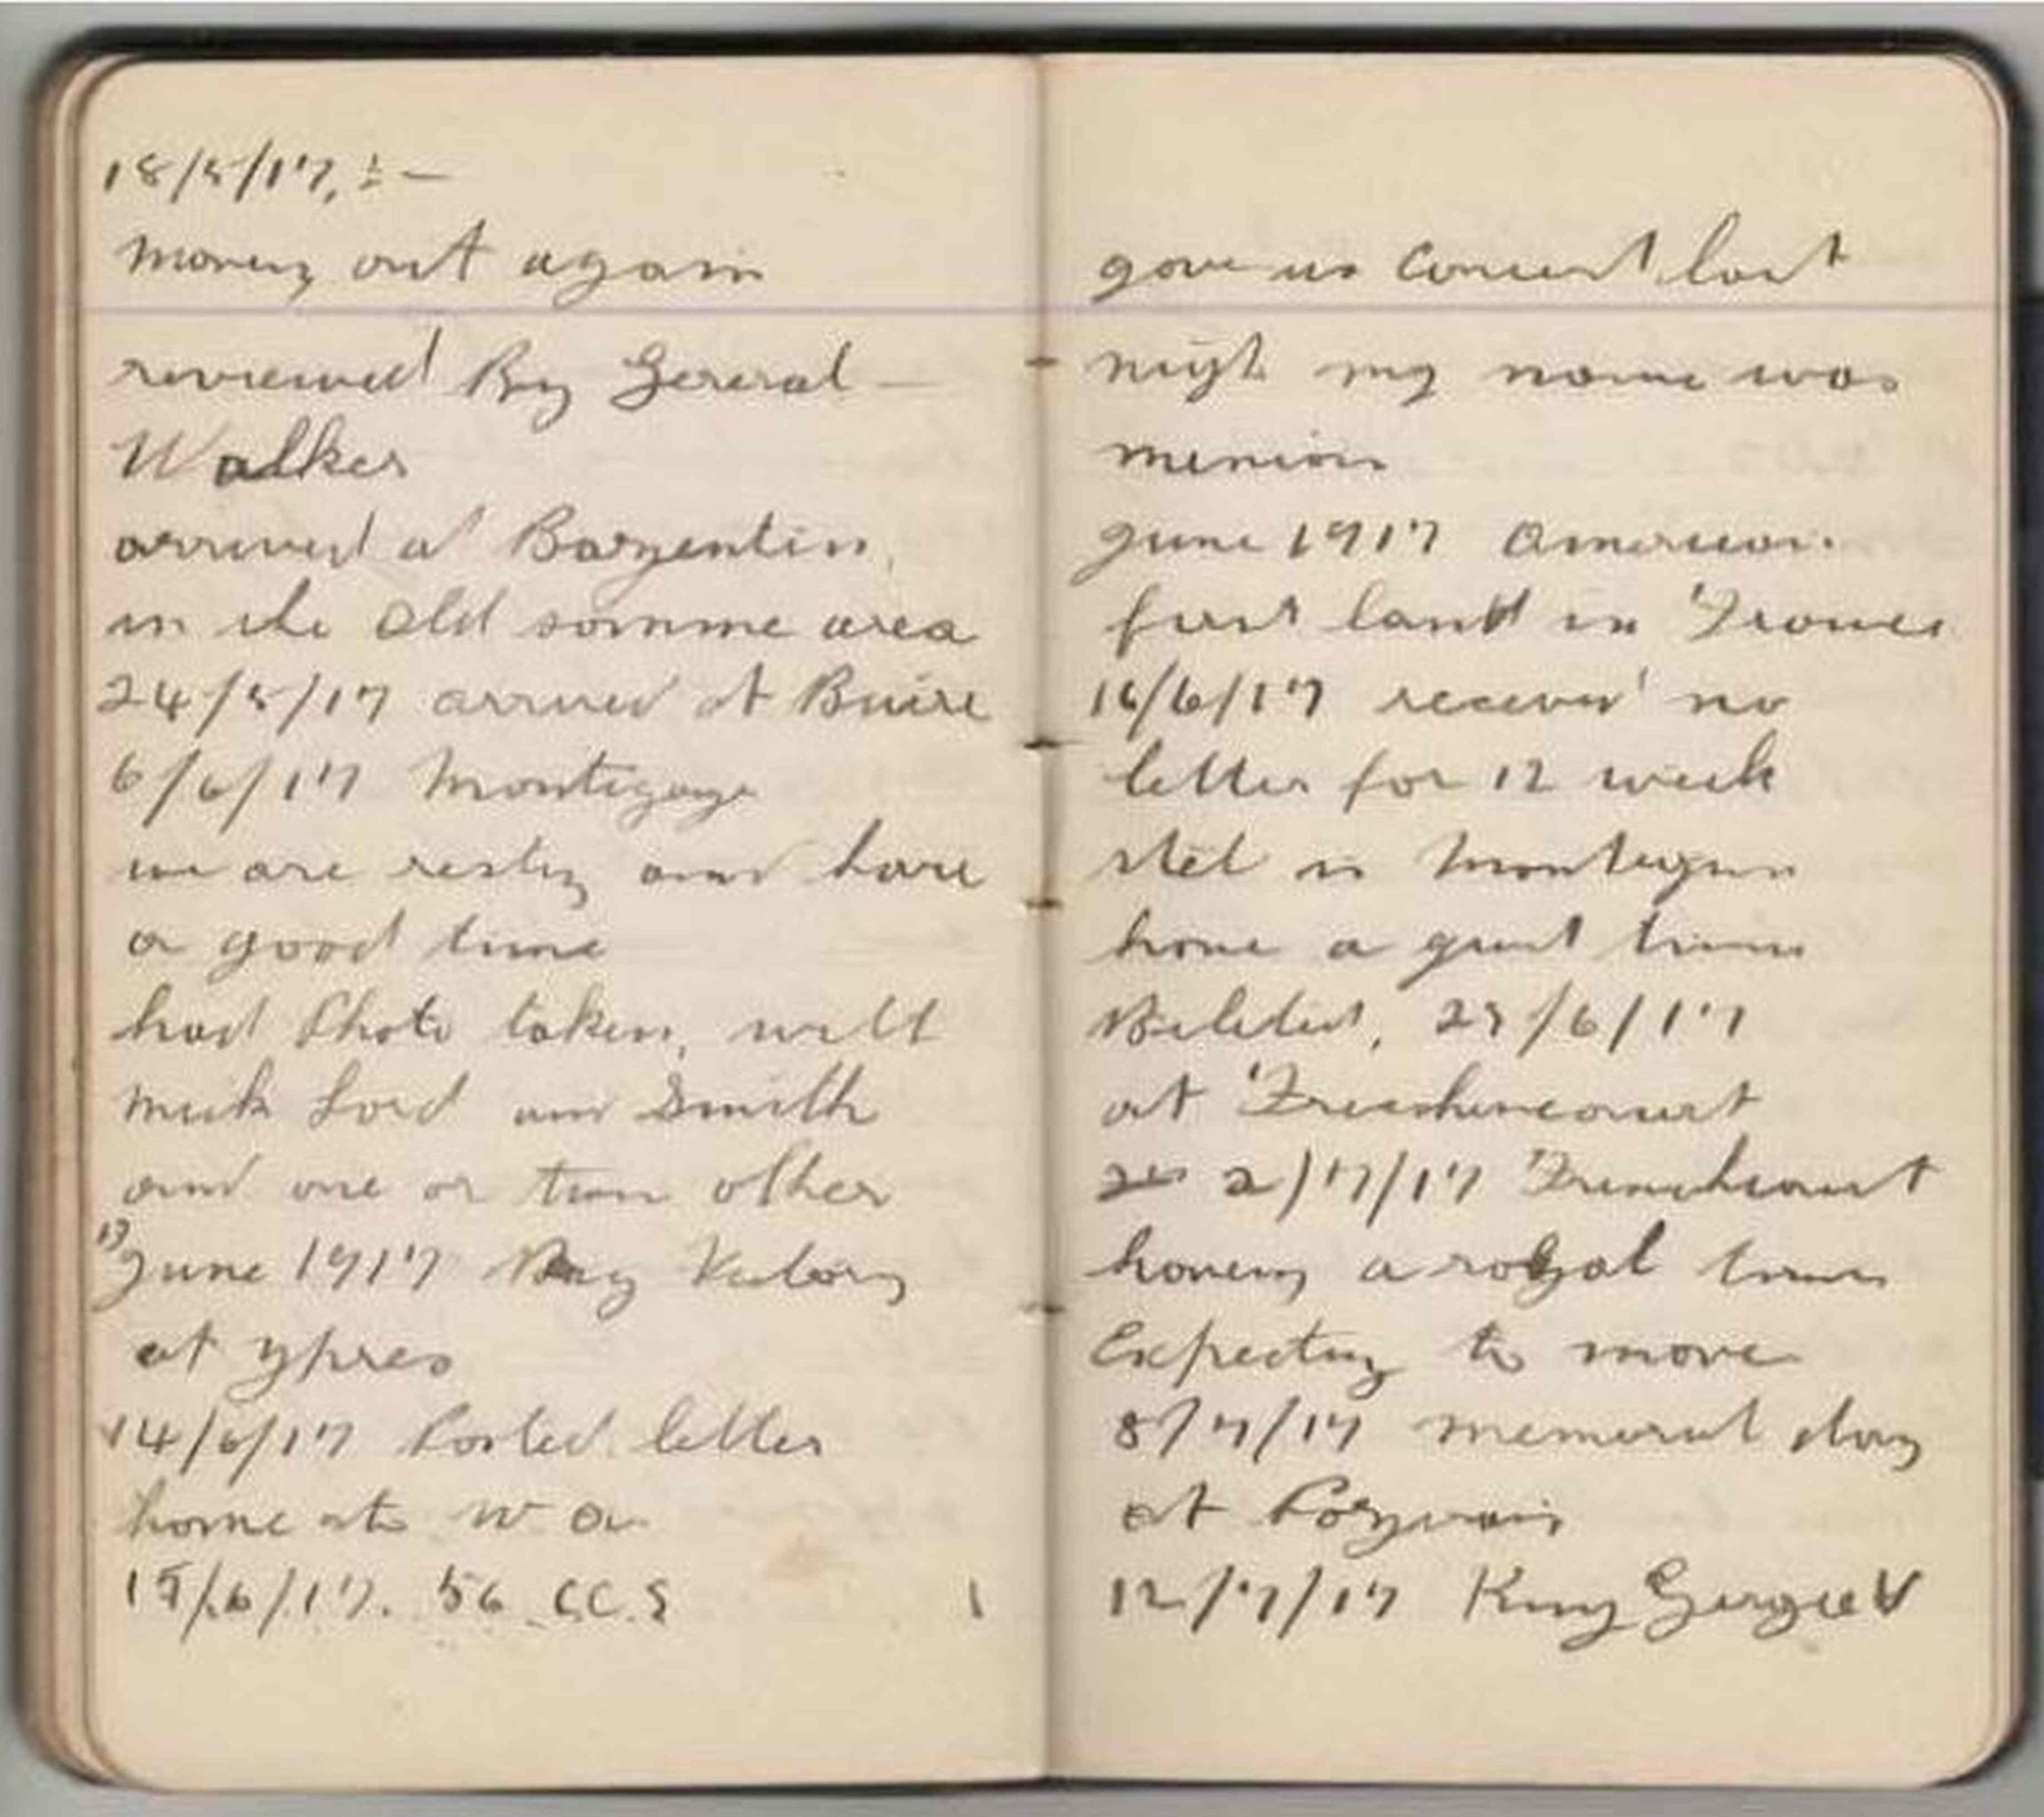 18/5/17, :-
moveing out again
reviewed By General
Walker
arrived at Bazentin
in the old somme area
24/5/17 arrived at Buire
6/6/17
we are resting and have
a good time
had Photo taken, with
mick Lord and Smith
and one or two other
13 June 1917 Big Victory
at ypres
14/6/17 Posted letter
home to W a
15/6/17. 56 C.C.S
gave us Concert last
night my name was
june 1917 American
first land in France
16/6/17 no
letter for 12 week
stil in
have a great time
Billeted, 29/6/17
at Frechencourt
2/7/17
haveing a royal time
Expecting to move
8/7/17 day
at
12/7/17 King George V